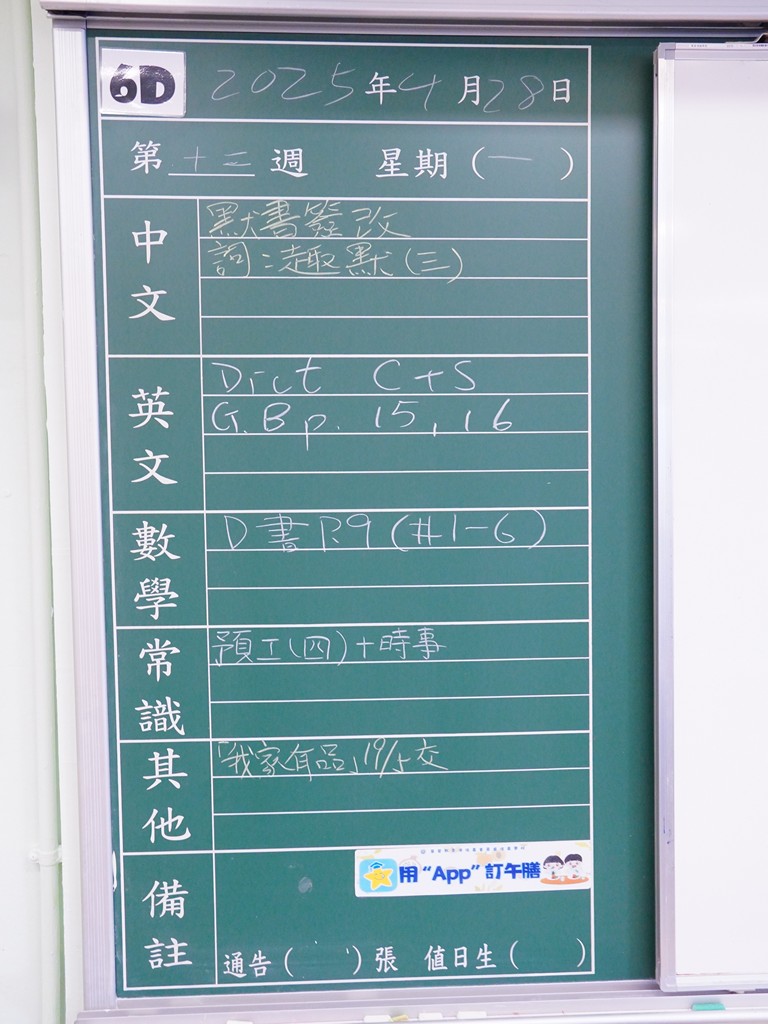 6D 2025年4月28日
第十三週 星期(一)
中文
默書簽改
詞:趣默(三)
英文
Dict C+S
G.B p. 15, 16
數學
D書P.9(#1-6)
常識
預工(四)+時事
其他
「我家有品」19/5交
備註
用“App”訂午膳
通告( )張 值日生( )